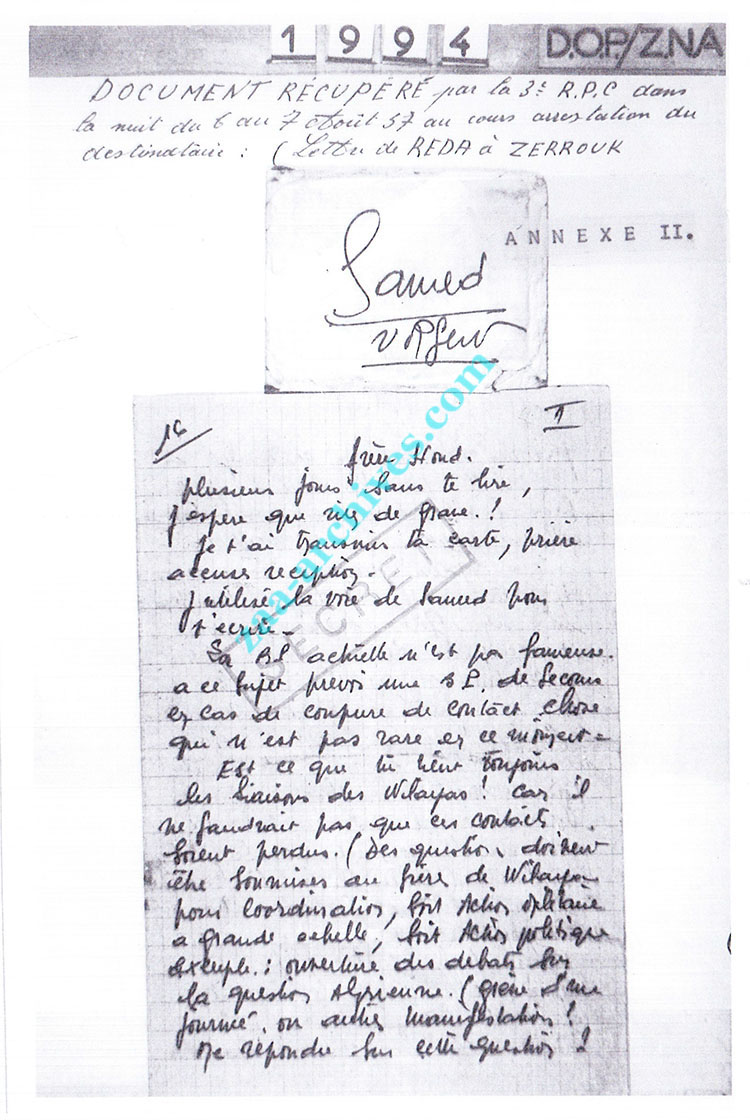 1 9 9 4
D.O.P/Z.N.A
DOCUMENT RÉCUPÉRÉ par la 3e R.P.C dans
la nuit du 6 au 7 Août 57 au cours arrestation du
destinataire : (Lettre de REDA à ZERROUK
ANNEXE II.
Samed
URgent
I
frère Houd.
plusieurs jours sans te lire,
j'espère que rien de grave. !
Je t'ai transmis ta carte, prière
accuser réception.
J'utilise la voie de Samed pour
t'écrire -
La BL actuelle n'est pas fameuse.
a ce sujet prévoi une B L. de secours
en cas de coupure de contact chose
qui n'est pas rare en ce moment -
Est ce que tu tient toujours
les liaisons des Wilayas ! car il
ne faudrait pas que ces contacts
soient perdus. (Des question, doivent
être soumises au frère de Wilayas
pour coordination, soit Action militaire
a grande echelle, soit Action politique
exemple : ouverture des debats sur
la question Algrienne. (grève d'une
journée, ou autres manifestation !
Me repondre sur cette question !
SECRET
zaa-archives.com